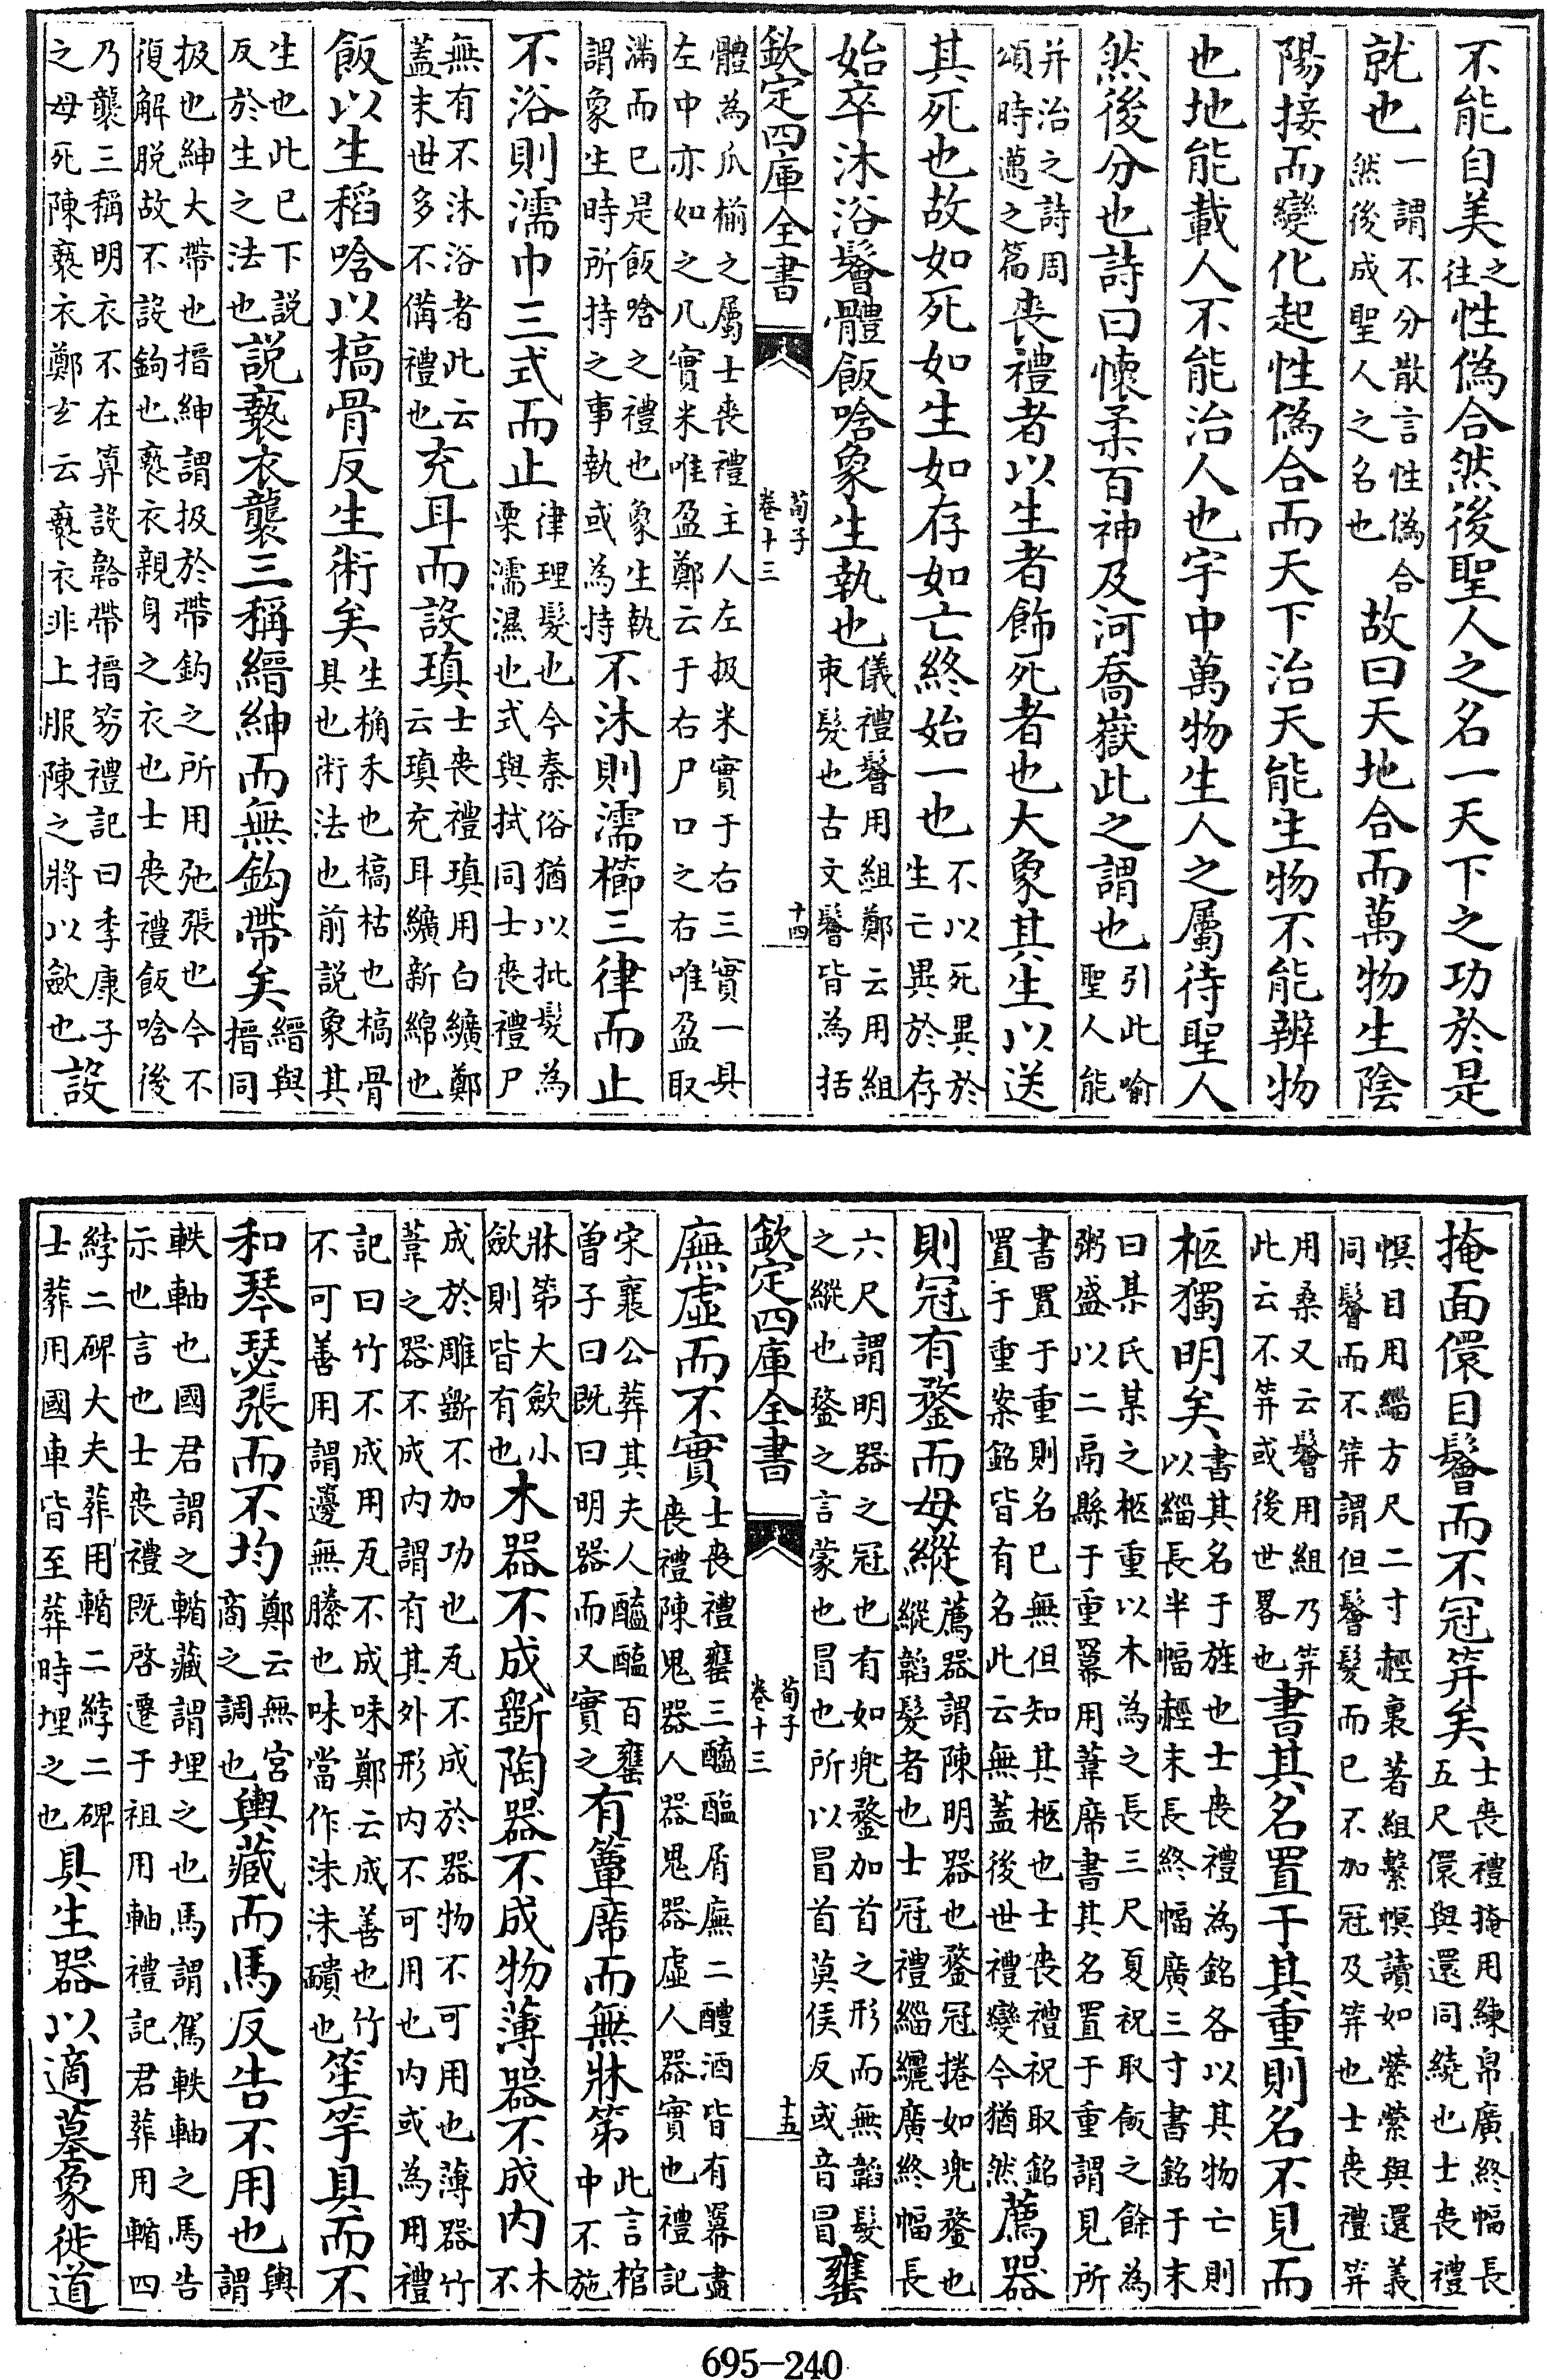 不能自美之往性偽合然後聖人之名一天下之功於是
就也一謂不分散言性偽合然後成聖人之名也故曰天地合而萬物生陰
陽接而變化起性偽合而天下治天能生物不能辨物
也地能載人不能治人也宇中萬物生人之屬待聖人
然後分也詩曰懷柔百神及河喬嶽此之謂也引此喻聖人能
并治之詩周頌時邁之篇喪禮者以生者飾死者也大象其生以送
其死也故如死如生如存如亡終始一也不以死異於生亡異於存
始卒沐浴鬠體飯唅象生執也儀禮鬠用組鄭云用組束髮也古文鬠皆為括
欽定四庫全書 荀子 卷十三 十四
體為爪揃之屬士喪禮主人左扱米實于右三實一具
左中亦如之凡實米唯盈鄭云于右尸口之右唯盈取
滿而已是飯唅之禮也象生執
謂象生時所持之事執或為持不沐則濡櫛三律而止
不浴則濡巾三式而止律理髮也今秦俗猶以批髮為栗濡濕也式與拭同士喪禮尸
無有不沐浴者此云蓋末世多不備禮也充耳而設瑱士喪禮瑱用白纊鄭云瑱充耳纊新綿也
飯以生稻唅以槁骨反生術矣生稻禾也槁枯也槁骨具也術法也前說象其
生也此已下說反於生之法也說褻衣襲三稱縉紳而無鈎帶矣縉與搢同
扱也紳大帶也搢紳謂扱於帶鈎之所用弛張也今不
復解脱故不設鈎也褻衣親身之衣也士喪禮飯唅後
乃襲三稱明衣不在算設韐帶搢笏禮記曰季康子
之母死陳褻衣鄭玄云褻衣非上服陳之將以斂也設
掩面儇目鬠而不冠笄矣士喪禮掩用練帛廣終幅長五尺儇與還同繞也士喪禮
幎目用緇方尺二寸䞓裏著組繫幎讀如縈縈與還義
同鬠而不笄謂但鬠髮而已不加冠及笄也士喪禮笄
用桑又云鬠用組乃笄此云不笄或後世畧也書其名置于其重則名不見而
柩獨明矣書其名于旌也士喪禮為銘各以其物亡則以緇長半幅䞓末長終幅廣三寸書銘于末
曰某氏某之柩重以木為之長三尺夏祝取飯之餘為
粥盛以二鬲縣于重冪用葦席書其名置于重謂見所
書置于重則名已無但知其柩也士喪禮祝取銘
置于重案銘皆有名此云無蓋後世禮變今猶然薦器
則冠有鍪而毋縰薦器謂陳明器也鍪冠捲如兜鍪也縰韜髮者也士冠禮緇纚廣終幅長
六尺謂明器之冠也有如兜鍪加首之形而無韜髮
之縰也鍪之言蒙也冒也所以冒首莫侯反或音冒罋
欽定四庫全書 荀子 卷十三 十五
廡虛而不實士喪禮罋三醯醢屑廡二醴酒皆有冪盡喪禮陳鬼器人器鬼器虛人器實也禮記
宋襄公葬其夫人醯醢百罋曾子曰既曰明器而又實之有簟席而無牀笫此言棺中不施
牀笫大斂小斂則皆有也木器不成斲陶器不成物薄器不成内木不
成於雕斲不加功也瓦不成於器物不可用也薄器竹
葦之器不成内謂有其外形内不可用也内或為用禮
記曰竹不成用瓦不成味鄭云成善也竹
不可善用謂邊無縢也味當作沬沬靧也笙竽具而不
和琴瑟張而不均鄭云無宮商之調也輿藏而馬反告不用也輿謂
軼軸也國君謂之輴藏謂埋之也馬謂駕軼軸之馬告
示也言也士喪禮既啓遷于祖用軸禮記君葬用輴四
綍二碑大夫葬用輴二綍二碑
士葬用國車皆至葬時埋之也具生器以適墓象徙道
695-240